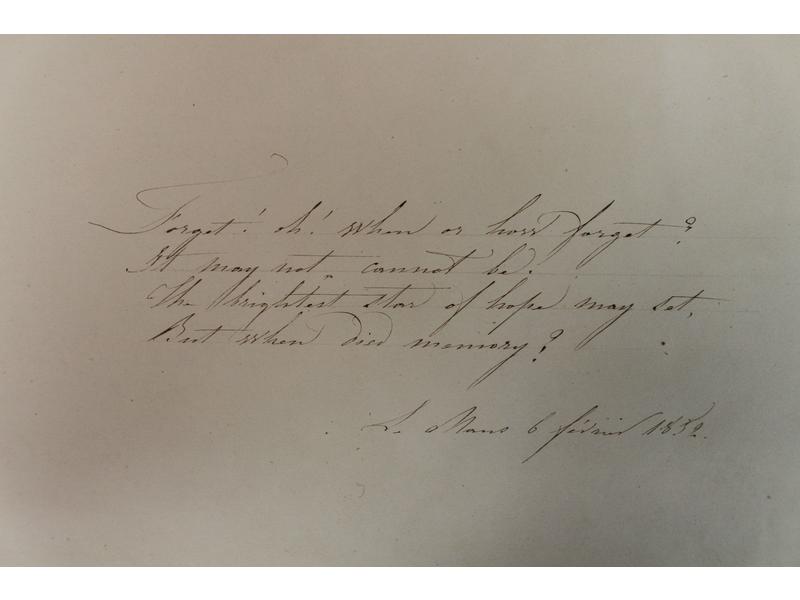 Forget! oh! when or how forget?
It may not, cannot be.
The brightest star of hope may set,
But when died memory?
Le Mans 6 février 1852.